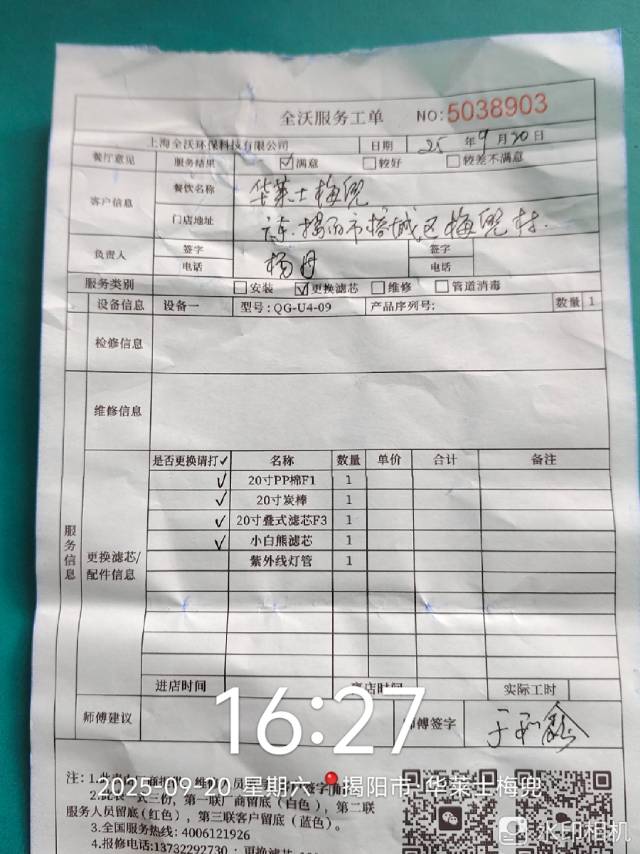 全沃服务工单 NO:5038903
上海全沃环保科技有限公司 日期 25 年 9 月 20 日
餐厅意见 服务结果 ☑满意 □较好 □较差不满意
客户信息 餐饮名称 华莱士梅兜
门店地址 揭阳市榕城区梅兜村
负责人 签字 签字
电话 杨丹 电话
服务类别 □安装 ☑更换滤芯 □维修 □管道消毒
服务信息
设备信息 设备一 型号:QG-U4-09 产品序列号: 数量 1
检修信息
维修信息
更换滤芯/配件信息
是否更换请打✓ 名称 数量 单价 合计 备注
✓ 20寸PP棉F1 1
✓ 20寸炭棒 1
✓ 20寸叠式滤芯F3 1
✓ 小白熊滤芯 1
紫外线灯管 1
进店时间 离店时间 实际工时
师傅建议 师傅签字
16:27
2025-09-20 星期六 揭阳市·华莱士梅兜
注:
2.此表一式三份,第一联厂商留底(白色),第二联
服务人员留底(红色),第三联客户留底(蓝色)。
3.全国服务热线:4006121926
4.报修电话:13732292730 更换滤芯
水印相机